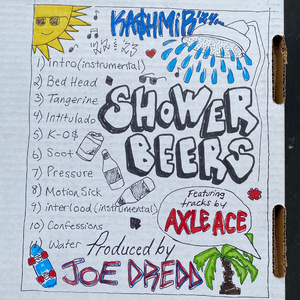 KASHMIR
1) intro (instrumental)
2) Bed Head
3) Tangerine
4) Intitulado
5) K-O$
6) Soot
7) Pressure
8) Motion Sick
9) interlood (instrumental)
10) Confessions
11) Water
SHOWER
BEERS
Featuring
tracks by
AXLE ACE
Produced by
JOE DREDD